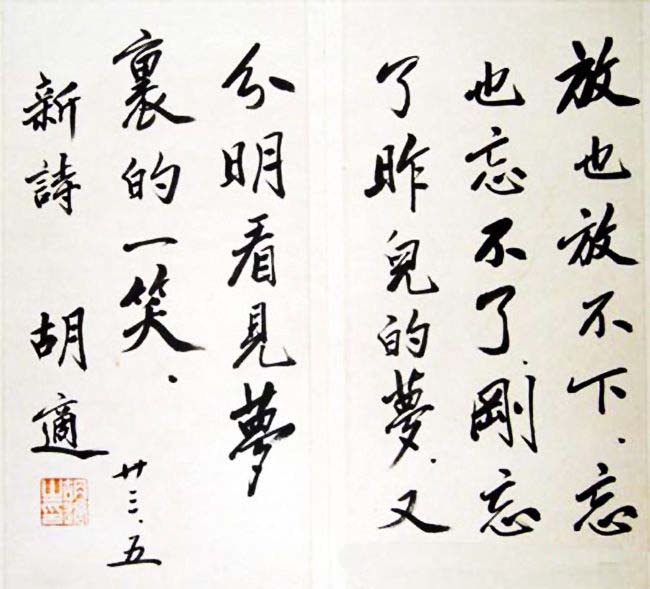 放也放不下、忘
也忘不了、剛忘
了昨兒的夢、又
分明看見夢
裏的一笑、
廿三、五
新詩 胡適